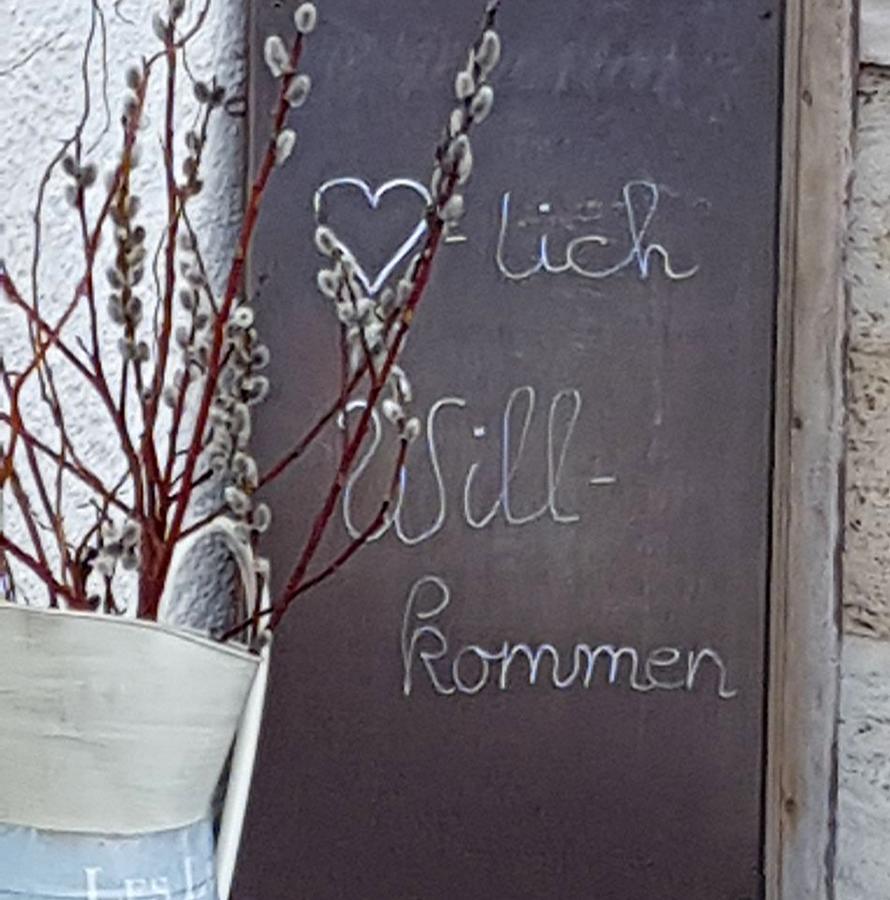 ♡- lich
Will-
kommen